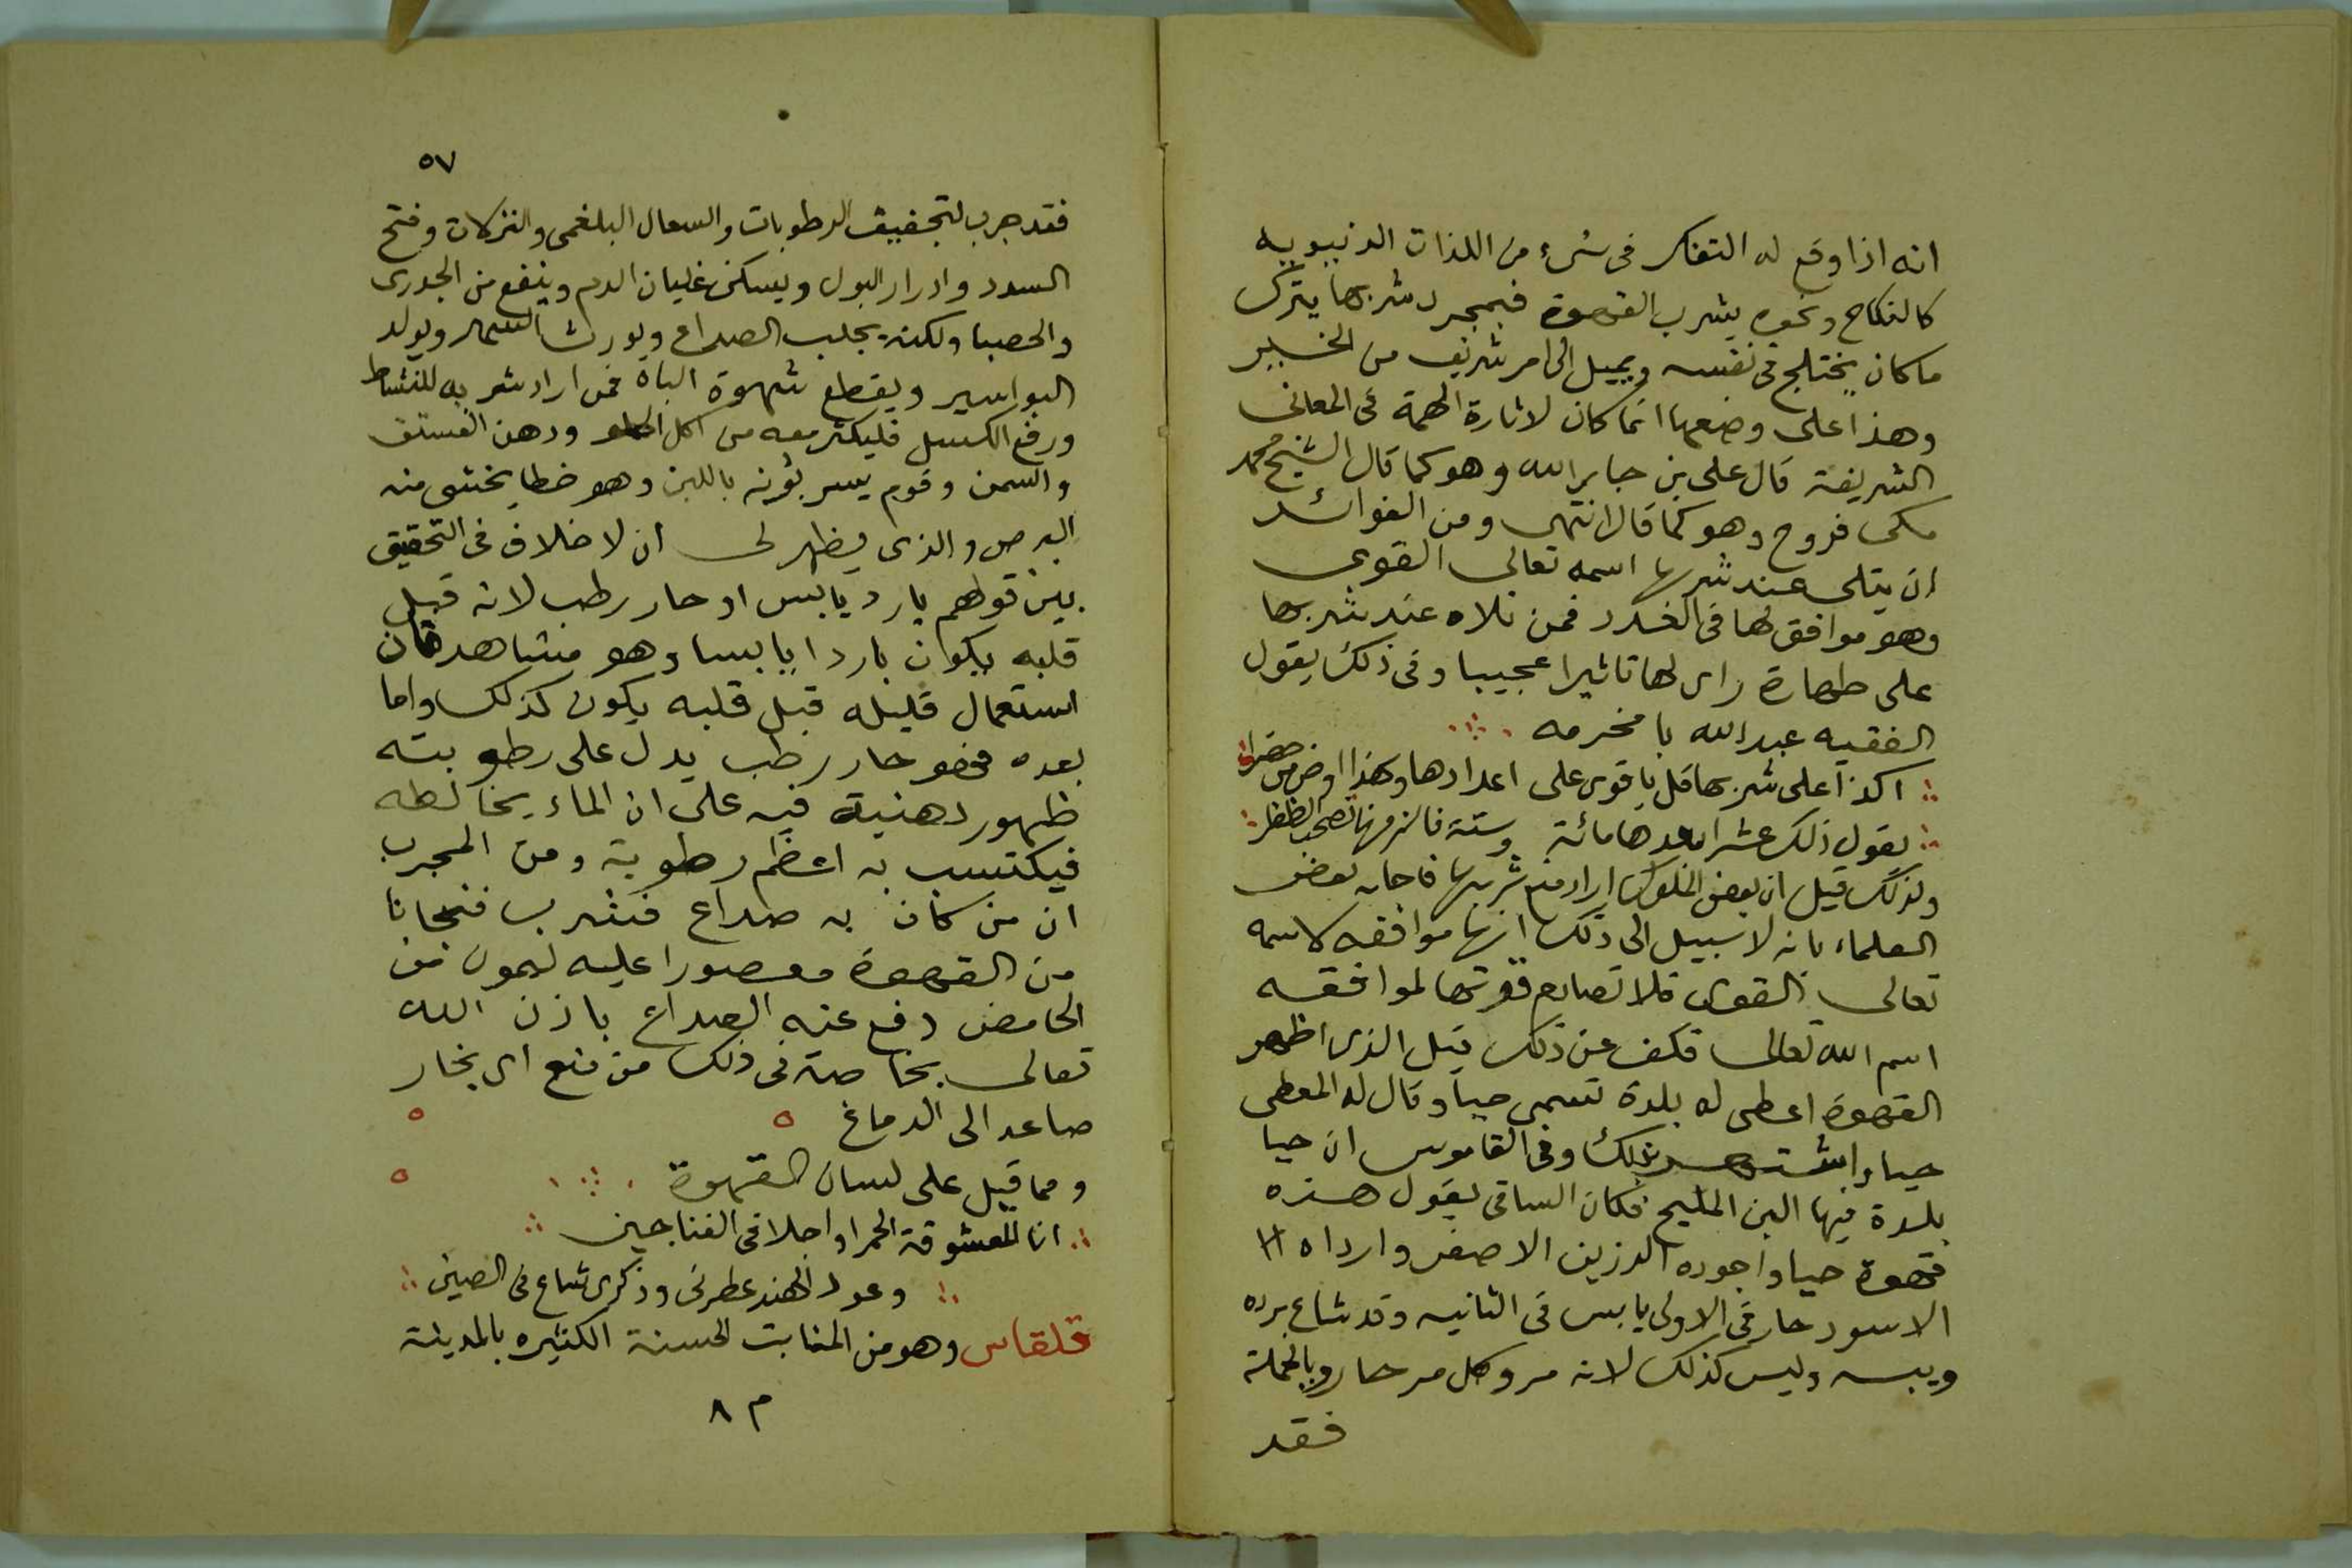 انه اذا وقع له التفكر فى شىء من اللذات الدنيويه
كالنكاح ونحوه يشرب القهوة فبمجرد شربها يترك
ما كان يختلج فى نفسه ويميل الى امر شريف من الخير
وهذا على وضعها انما كان لاثارة الهمة فى المعانى
الشريفة قال على بن جابر الله وهو كما قال الشيخ محمد
مكى فروح وهو كما قال انتهى ومن الفوائد
ان يتلى عند شربها اسمه تعالى القوى
وهو موافق لها فى العدد فمن تلاه عند شربها
على طهارة راى لها تاثيرا عجيبا وفى ذلك يقول
الفقيه عبد الله بامخرمه
اكذا على شربها قل ياقوى على اعدادها وهذا
يقول ذلك عشرا بعدها مائة وستة فالزمنها تصحب لظفر
ولذلك قيل ان بعض الملوك اراد منع شربها فاجابه بعض
العلماء بانه لا سبيل الى ذلك انها موافقه لاسمه
تعالى القوى فلا تصادم قوتها لموافقه
اسم الله تعالى فكف عن ذلك قيل الذى اظهر
القهوة اعطى له بلدة تسمى حيا وقال له المعطى
حيا واشتهر بذلك وفى القاموس ان حيا
بلدة فيها البن المليح فكان الساقى يقول هذه
قهوة حيا واجوده الرزين الاصفر وارداه
الاسود حار فى الاولى يابس فى الثانيه وقد شاع برده
ويبسه وليس كذلك لانه مر وكل مر حار وبالجملة
فقد
٥٧
فقد جرب لتجفيف الرطوبات والسعال البلغمى والنزلات وفتح
السدد وادرار البول ويسكن غليان الدم وينفع من الجدرى
والحصبا ولكنه يجلب الصداع ويورث السهر ويولد
البواسير ويقطع شهوة الباة فمن اراد شربه للنشاط
ورفع الكسل فليكثر معه من اكل الحلو ودهن الفستق
والسمن وقوم يسربونه باللبن وهو خطا يخشى منه
البرص والذى يظهر لى ان لا خلاف فى التحقيق
بين قولهم بارد يابس او حار رطب لانه قبل
قلبه يكون باردا يابسا وهو مشاهد فان
استعمال قليله قبل قلبه يكون كذلك واما
بعده فهو حار رطب يدل على رطوبته
ظهور دهنية فيه على ان الماء يخالطه
فيكتسب به اعظم رطوبة ومن المجرب
ان من كان به صداع فشرب فنجانا
من القهوة معصورا عليه ليمون من
الحامض دفع عنه الصداع باذن الله
تعالى بخاصة فى ذلك من منع اى بخار
صاعد الى الدماغ
ومما قيل على لسان القهوة
انا المعشوقة الحمرا واجلا فى الفناجين
وعود الهند عطرنى وذكرى شاع فى الصين
قلقاس وهو من المنابت الحسنة الكثيره بالمدينة
م ٨